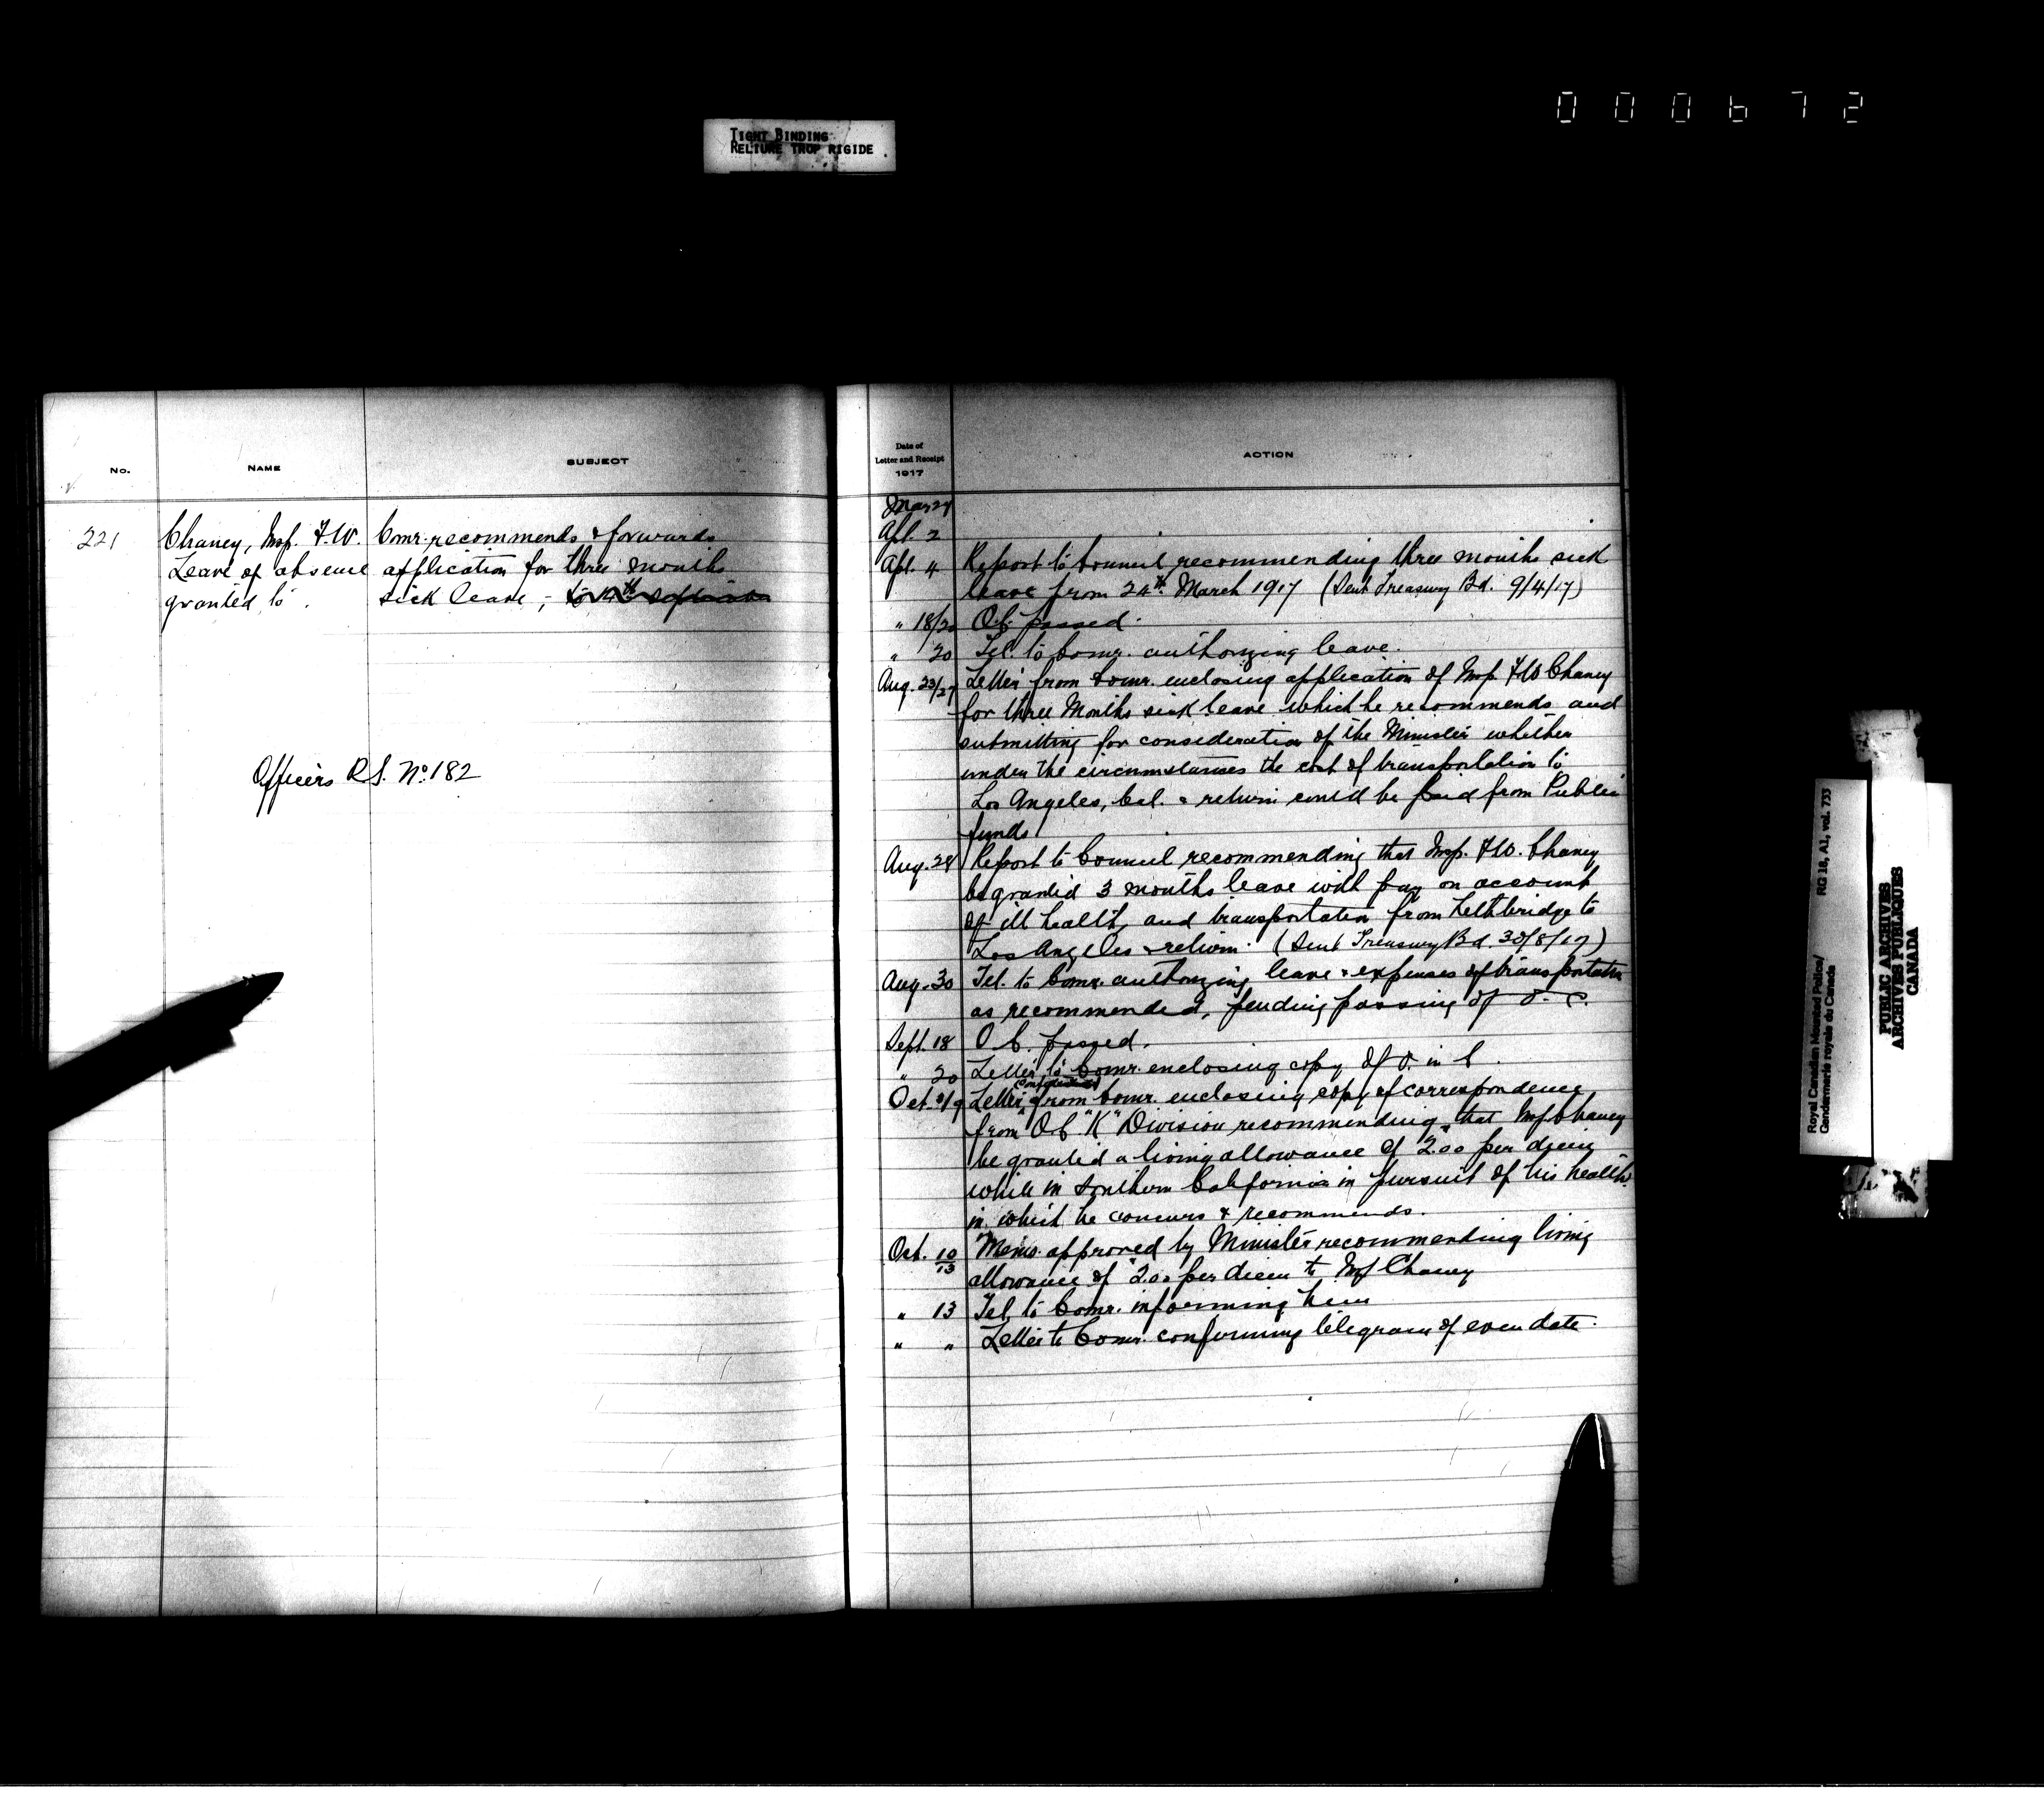 000672
TIGHT BINDING
RELIURE TROP RIGIDE
No.
NAME
SUBJECT
221
Chaney, Insp. F.W.
Leave of absence
granted to.
Comr. recommends & forwards
application for three months
sick leave, -
Officers R.S. No. 182
Date of
Letter and Receipt
1917
ACTION
Mar 27
Apl. 2
Apl. 4 Report to Council recommending three months sick
leave from 24th March 1917 (Sent Treasury Bd. 9/4/17)
" 18/20 O.C. passed.
" 20 Tel. to Comr. authorizing leave.
Aug. 23/27 Letter from Comr. enclosing application of Insp. F W Chaney
for three Months sick leave which he recommends and
submitting for consideration of the Minister whether
under the circumstances the cost of transportation to
Los Angeles, Cal. & return could be paid from Public
funds
Aug. 29 Report to Council recommending that Insp. F.W. Chaney
be granted 3 months leave with pay on account
of ill health, and transportation from Lethbridge to
Los Angeles & return. (Sent Treasury Bd. 30/8/17)
Aug. 30 Tel. to Comr. authorizing leave & expenses of transportation
as recommended, pending passing of O. C.
Sept. 18 O C. passed.
" 20 Letter to Comr. enclosing copy of O. in C.
Oct. Letter (Confidential) from Comr. enclosing copy of correspondence
from O.C. "K" Division recommending that Insp Chaney
be granted a living allowance of $2.00 per diem
while in Southern California in pursuit of his health.
in which he concurs & recommends.
Oct. 10/13 Memo. approved by Minister recommending living
allowance of $2.00 per diem to Insp Chaney
" 13 Tel. to Comr. informing him
" " Letter to Comr. confirming telegram of even date.
Royal Canadian Mounted Police/
Gendarmerie royale du Canada
RG 18, A1, vol. 733
PUBLIC ARCHIVES
ARCHIVES PUBLIQUES
CANADA